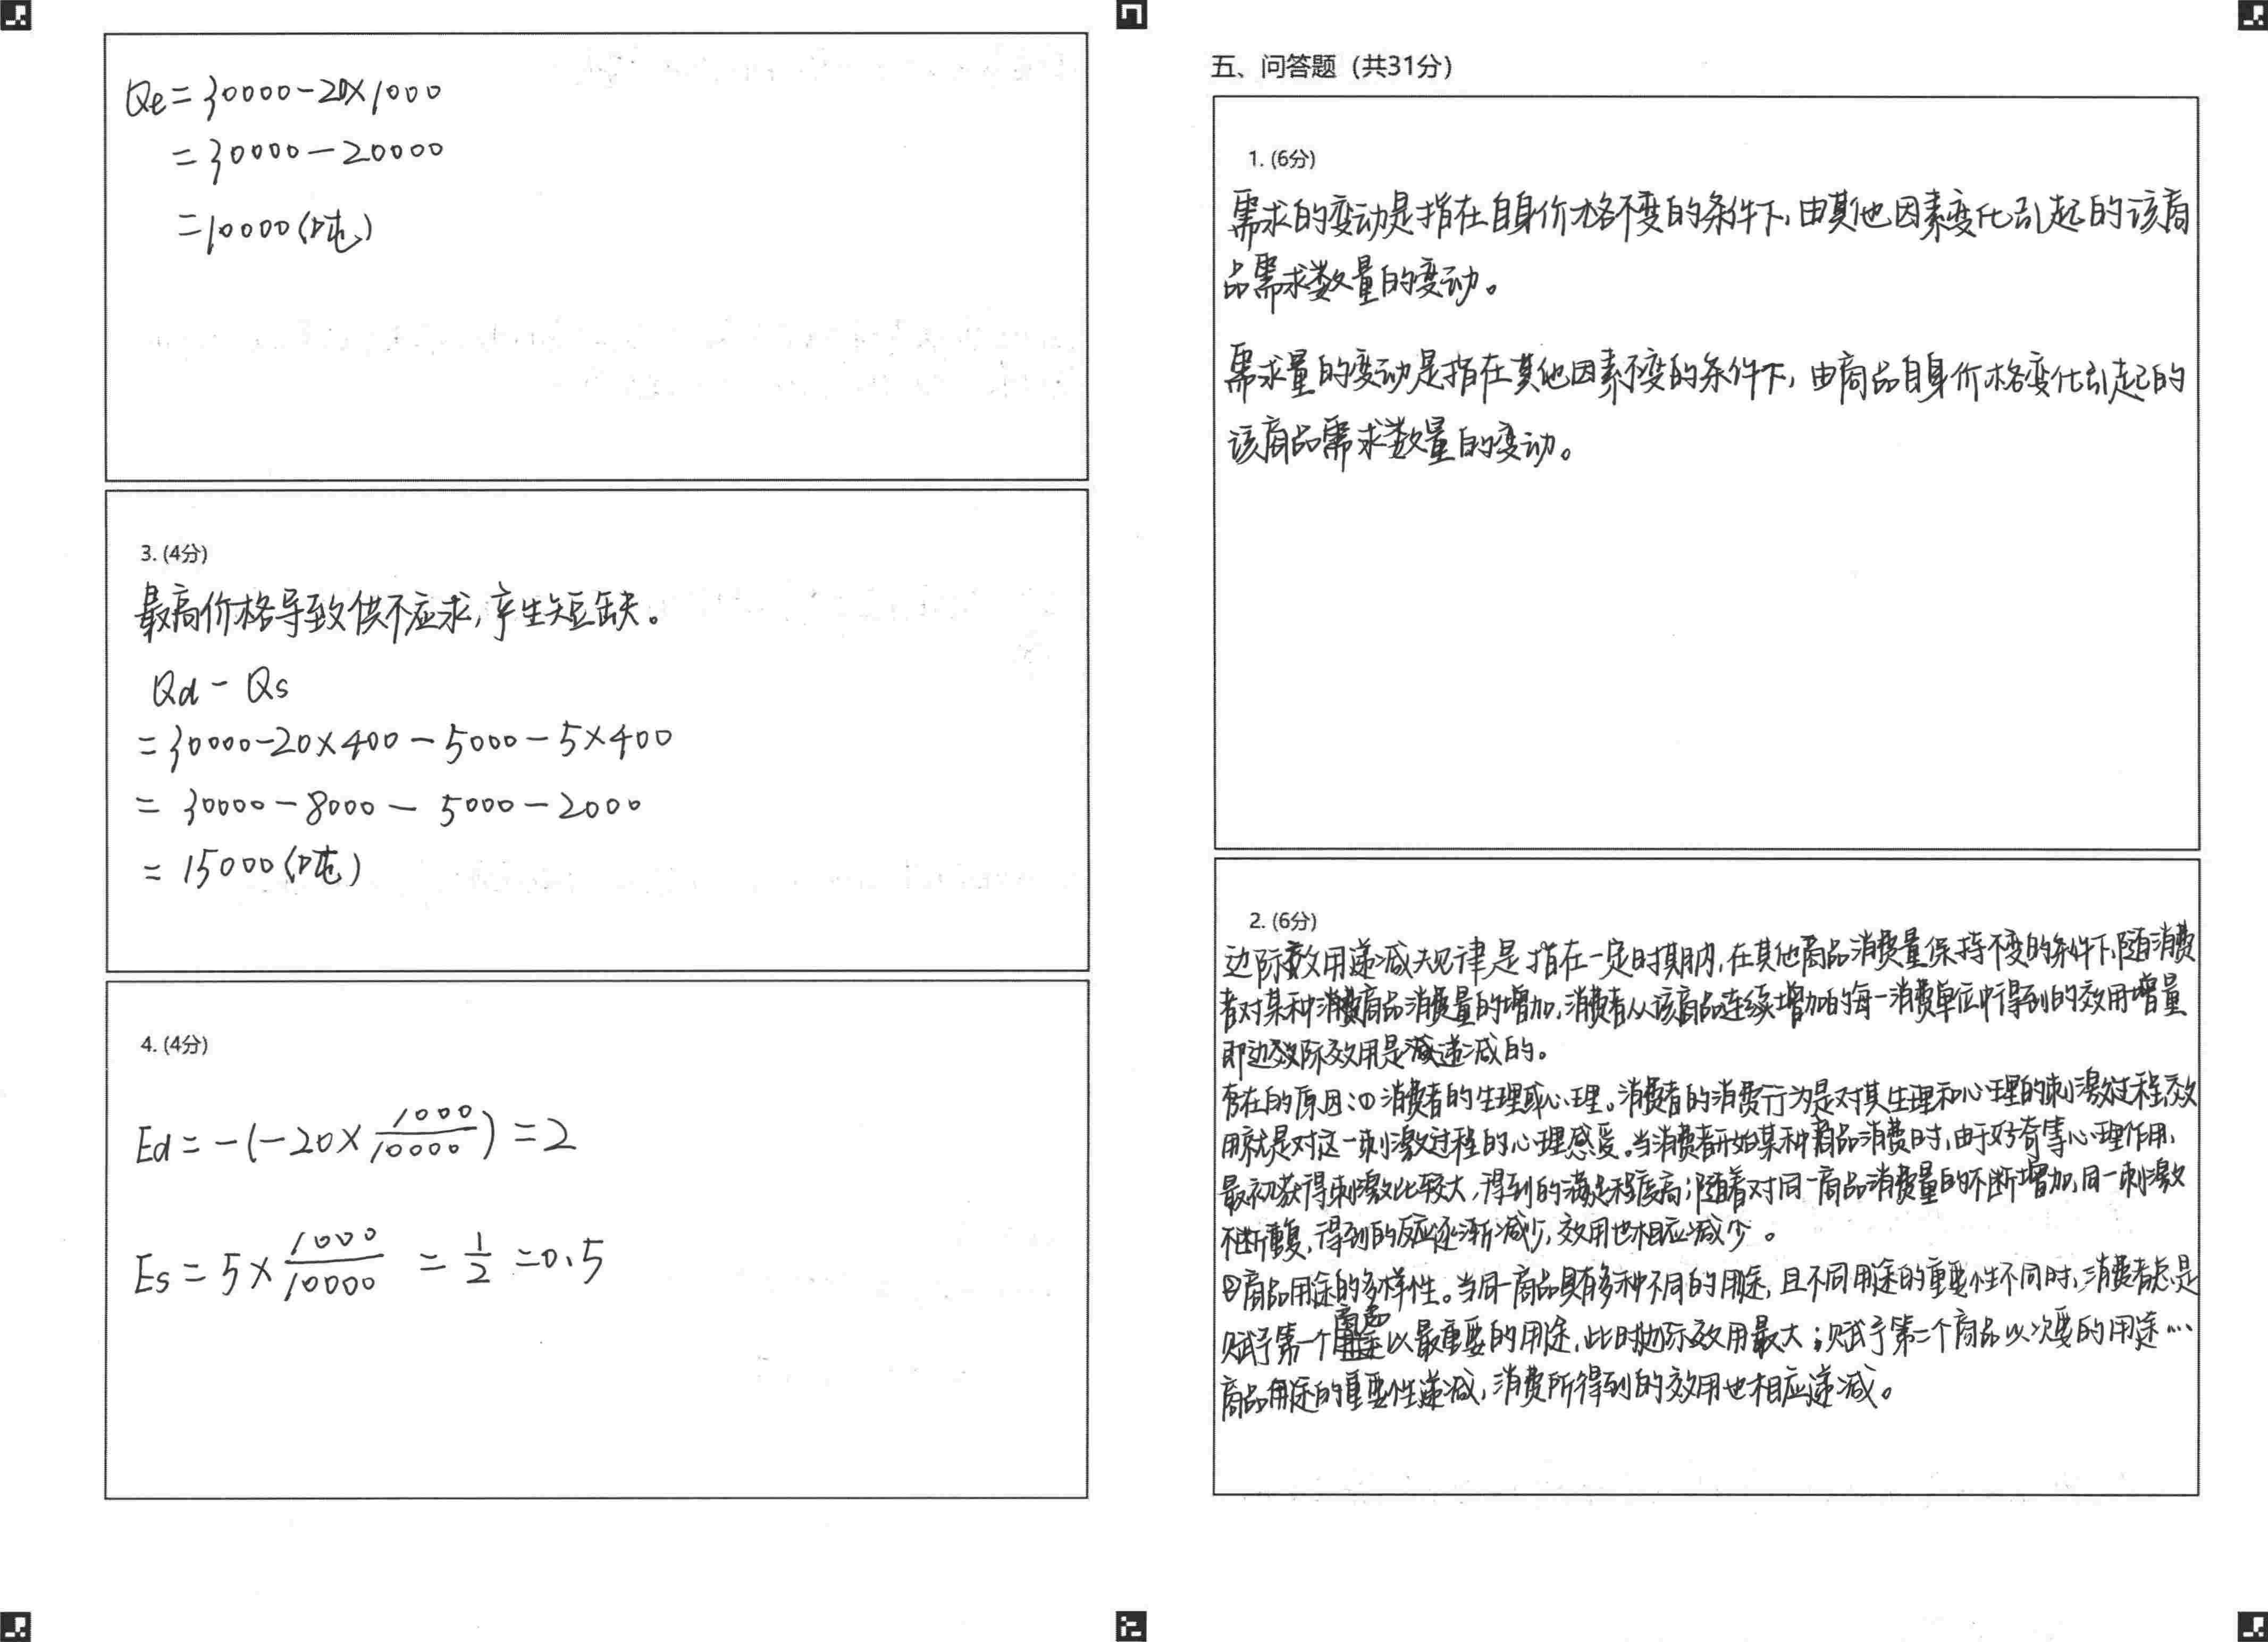 Qe=30000-20×1000
=30000-20000
=10000(吨)
3. (4分)
最高价格导致供不应求,产生短缺。
Qd-Qs
=30000-20×400-5000-5×400
=30000-8000-5000-2000
=15000(吨)
4. (4分)
Ed=-(-20×1000/10000)=2
Es=5×1000/10000=1/2=0.5
五、问答题(共31分)
1. (6分)
需求的变动是指在自身价格不变的条件下,由其他因素变化引起的该商
品需求数量的变动。
需求量的变动是指在其他因素不变的条件下,由商品自身价格变化引起的
该商品需求数量的变动。
2. (6分)
边际效用递减规律是指在一定时期内,在其他商品消费量保持不变的条件下,随消费
者对某种商品消费量的增加,消费者从该商品连续增加的每一消费单位中得到的效用增量
即边际效用是递减的。
存在的原因:①消费者的生理或心理。消费者的消费行为是对其生理和心理的刺激过程,效
用就是对这一刺激过程的心理感受。当消费者开始某种商品消费时,由于好奇等心理作用,
最初获得刺激比较大,得到的满足程度高;随着对同一商品消费量的不断增加,同一刺激
不断重复,得到的反应逐渐减少,效用也相应减少。
②商品用途的多样性。当同一商品具有多种不同的用途,且不同用途的重要性不同时,消费者总是
赋予第一个商品以最重要的用途,此时边际效用最大;赋予第二个商品以次要的用途…
商品用途的重要性递减,消费所得到的效用也相应递减。